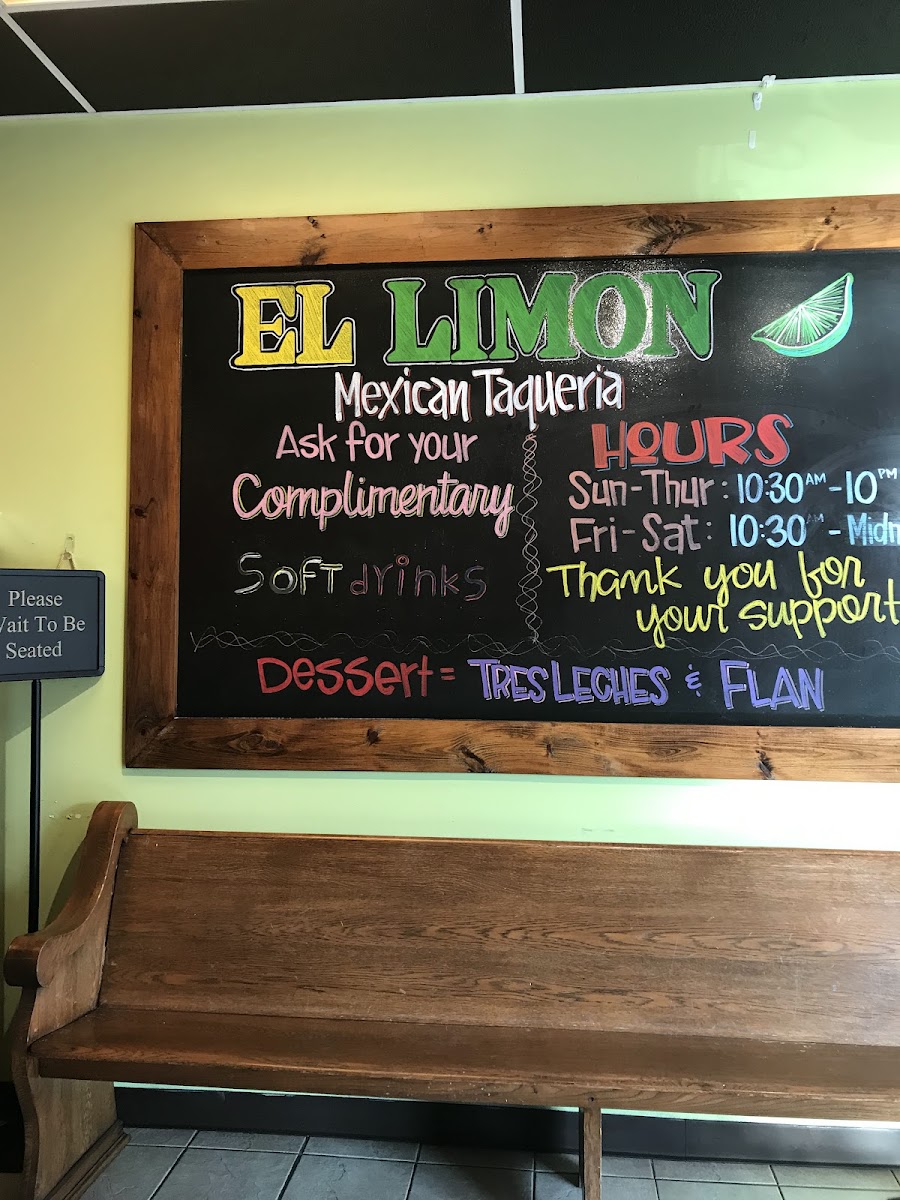 EL LIMON
Mexican Taqueria
Ask for your
Complimentary
Soft drinks
HOURS
Sun-Thur: 10:30AM-10PM
Fri-Sat: 10:30AM - Midn
Thank you for
your support
Dessert = TRES LECHES & FLAN
Please
Wait To Be
Seated